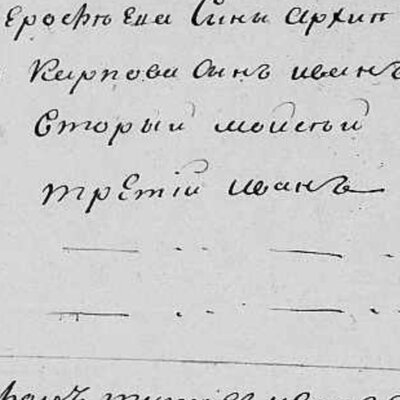 Ерофѣева Сины архип
Карпова Синъ иванъ
вторый мойсѣй
третiй иванъ